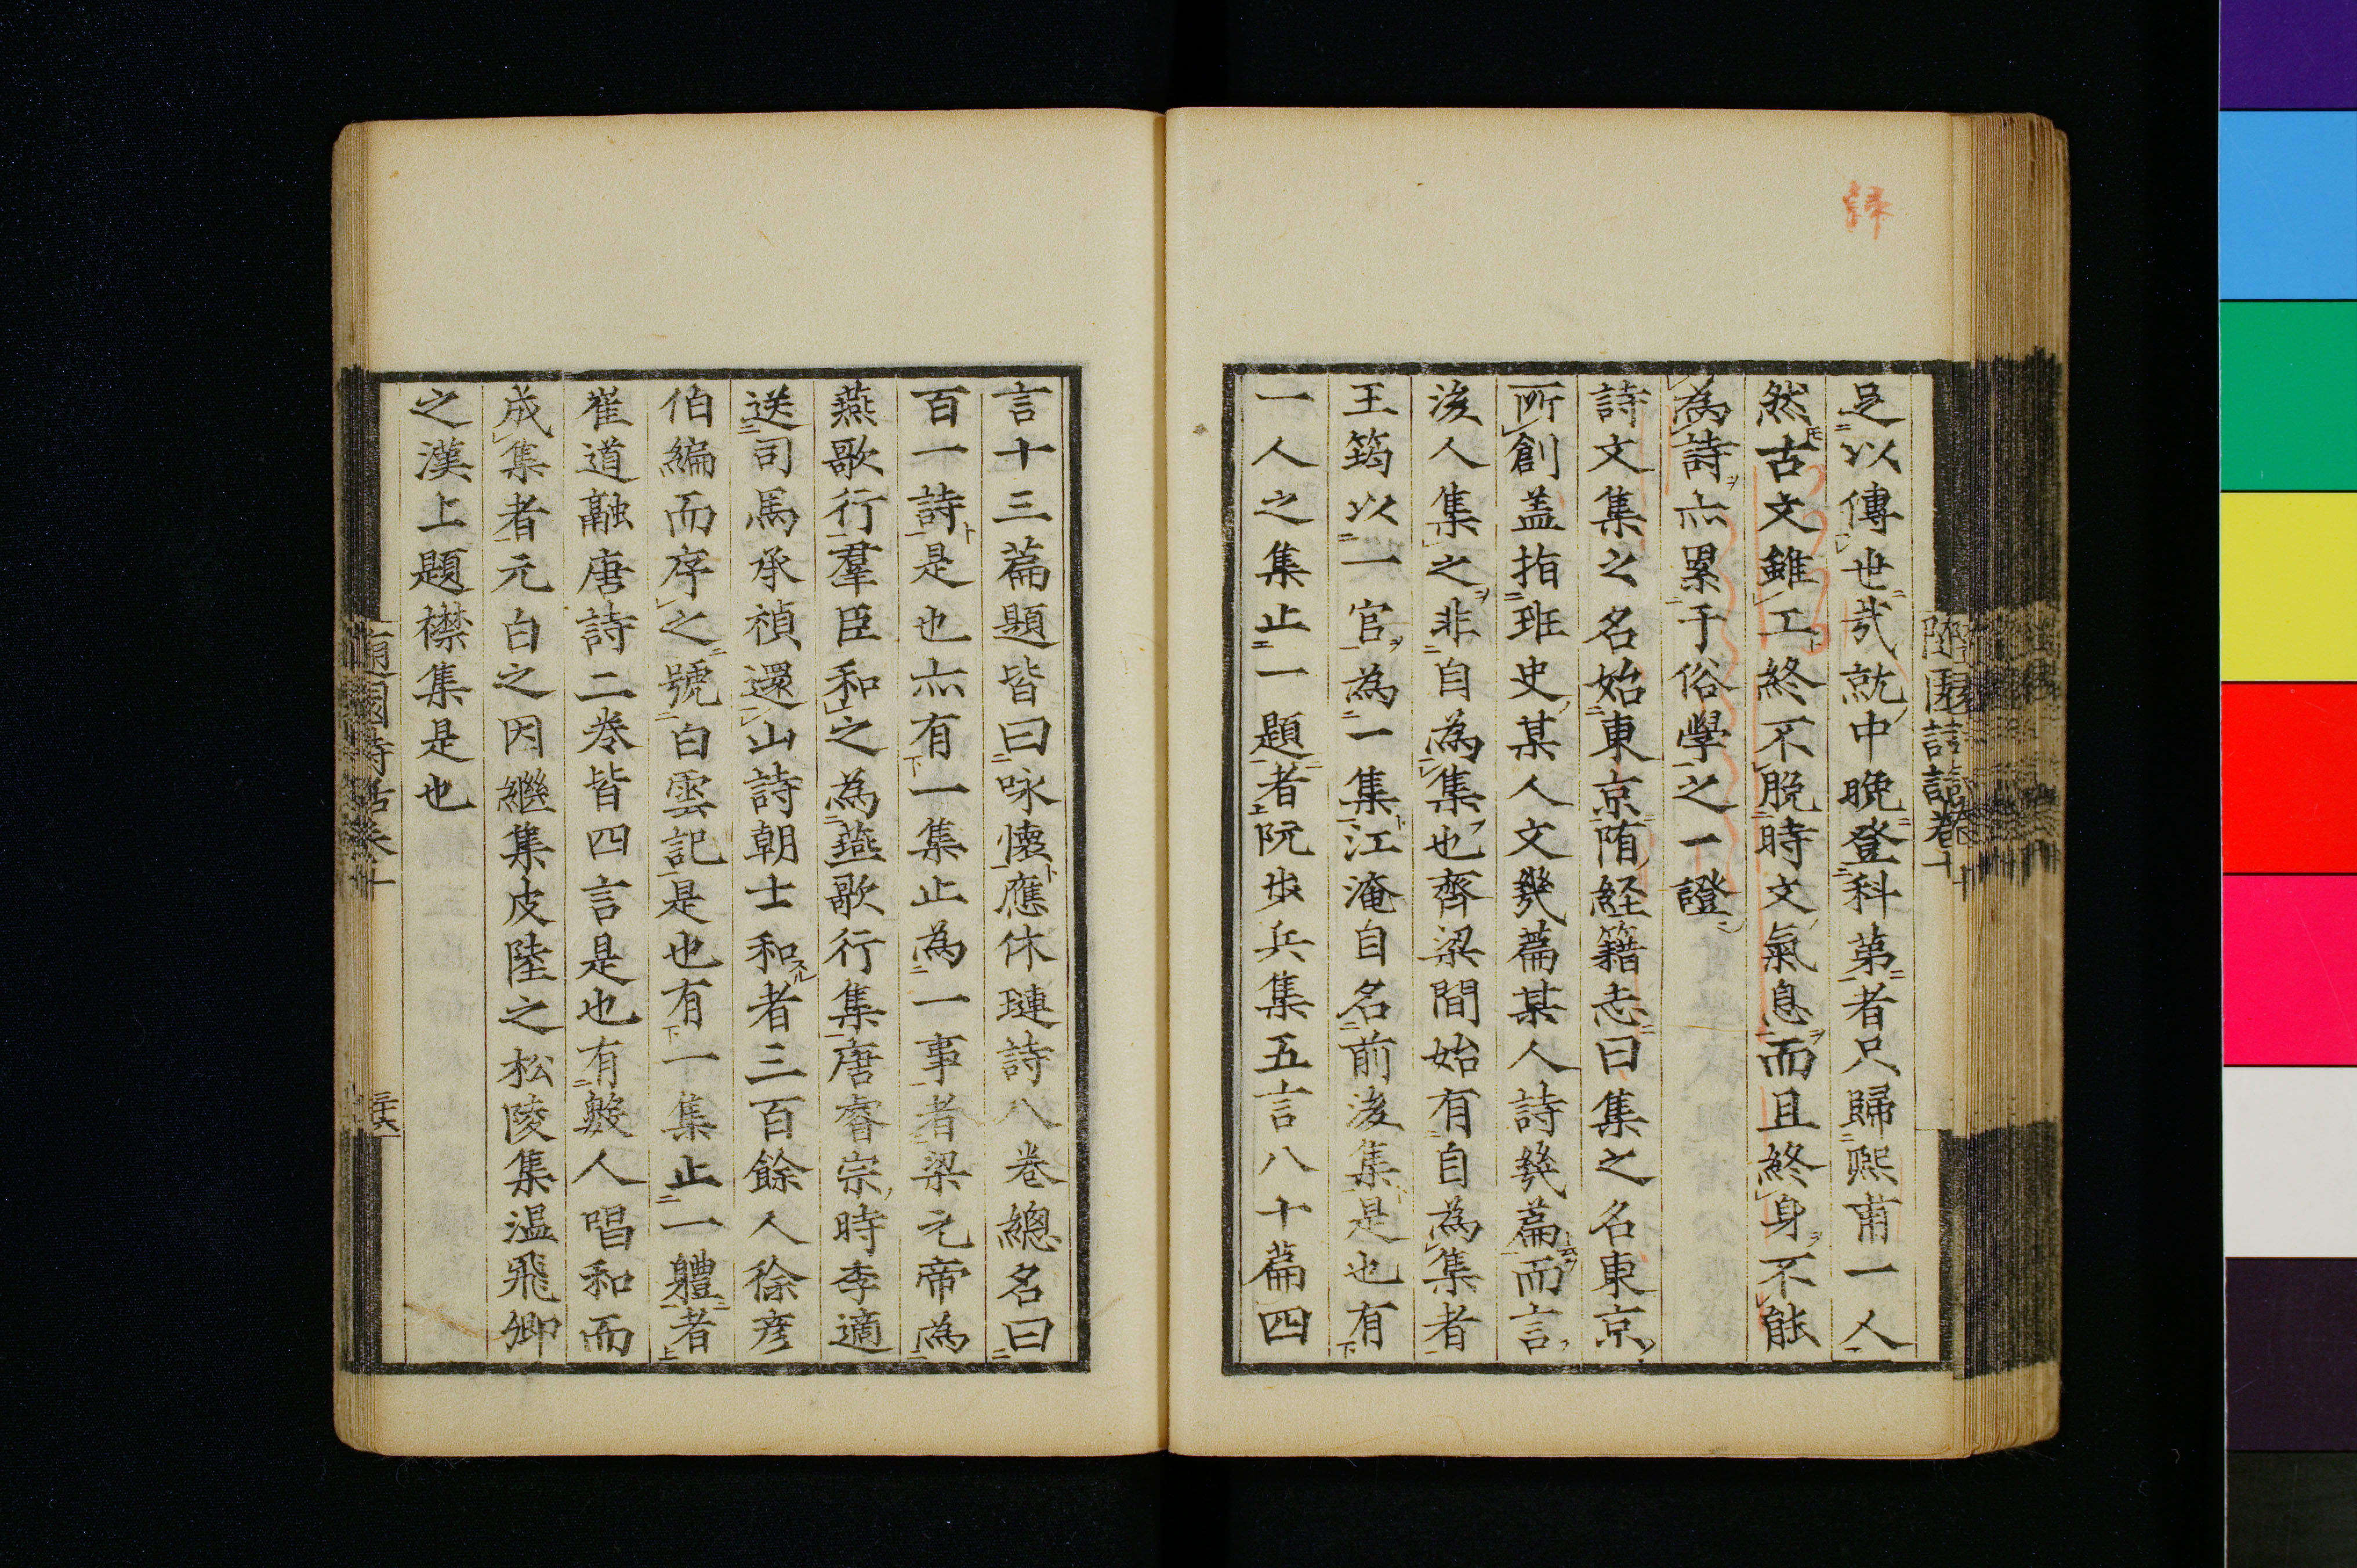 足以傳世㢤就中晚登科第者只歸熙甫一人
然古文雖工終不脫時文氣息而且終身不能
為詩亦累于俗學之一證
詩文集之名始東京隋經籍志曰集之名東京
所創盖指班史某人文幾篇某人詩幾篇而言
後人集之非自為集也齊梁間始有自為集者
王筠以一官為一集江淹自名前後集是也有
一人之集止一題者阮步兵集五言八十篇四
言十三篇題皆曰咏懷應休璉詩八卷總名曰
百一詩是也亦有一集止為一事者梁元帝為
燕歌行羣臣和之為燕歌行集唐睿宗時李適
送司馬承禎還山詩朝士和者三百餘人徐彥
伯編而序之號白雲記是也有一集止一體者
崔道融唐詩二卷皆四言是也有數人唱和而
成集者元白之因繼集皮陸之松陵集温飛卿
之漢上題襟集是也
隨園詩話卷十